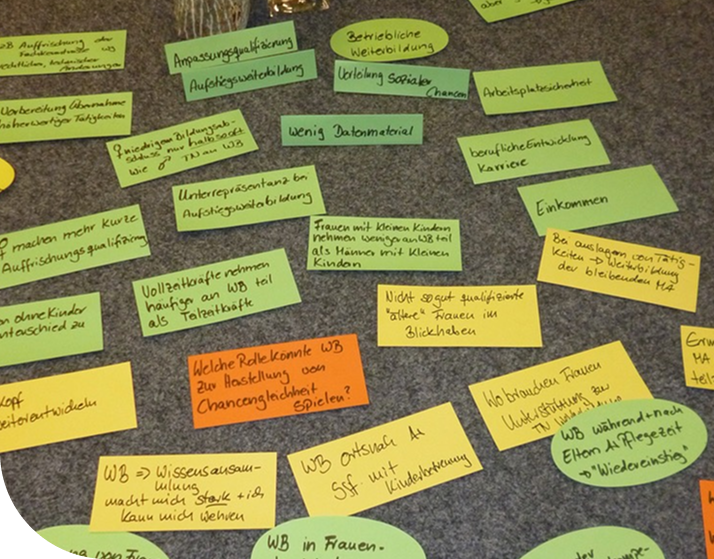 aber s
zB Auffrischung der
Fachkenntnisse wg
rechtlicher, technischer
Änderungen
Anpassungsqualifizierung
Aufstiegsweiterbildung
Betriebliche
Weiterbildung
Verteilung sozialer
Chancen
Arbeitsplatzsicherheit
Vorbereitung Übernahme
höherwertiger Tätigkeiten
♀ niedrigem Bildungsab-
schluss nur halb so oft
wie ♂ TN an WB
wenig Datenmaterial
berufliche Entwicklung
Karriere
Unterrepräsentanz bei
Aufstiegsweiterbildung
Einkommen
♀ machen mehr kurze
Auffrischungsqualifizierung
Frauen mit kleinen Kindern
nehmen weniger an WB teil
als Männer mit kleinen
Kindern
Bei auslagern von Tätig-
keiten → Weiterbildung
der bleibenden MA
Vollzeitkräfte nehmen
häufiger an WB teil
als Teilzeitkräfte
en ohne Kinder
nterschied zu
Nicht so gut qualifizierte
"ältere" Frauen im
Blick haben
Welche Rolle könnte WB
zur Herstellung von
Chancengleichheit
spielen?
MA
teil
Kopf
weiterentwickeln
Wo brauchen Frauen
Unterstützung zur
TN
WB während + nach
Eltern & Pflegezeit
→ "Wiedereinstieg"
WB ortsnah &
ggf. mit
Kinderbetreuung
WB ⇒ Wissensansam-
mlung
macht mich stark + ich
kann mich wehren
von Fr
WB in Frauen-
der